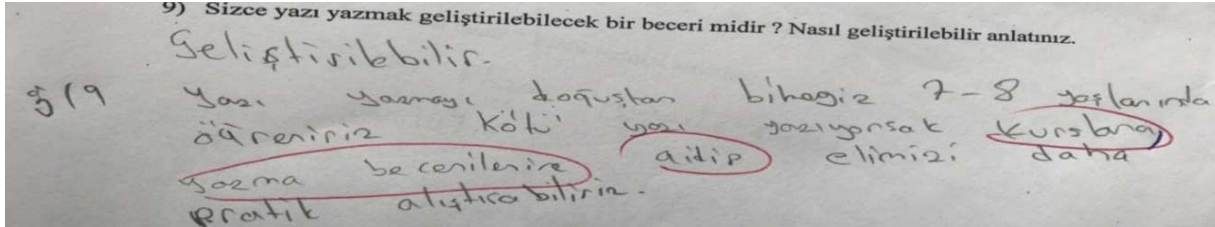 9) Sizce yazı yazmak geliştirilebilecek bir beceri midir ? Nasıl geliştirilebilir anlatınız.
Geliştirilebilir.
Yazı yazmayı doğuştan bilmeyiz 7-8 yaşlarında
öğreniriz kötü yazı yazıyorsak kurslara,
yazma becerilerine gidip elimizi daha
pratik alıştırabiliriz.